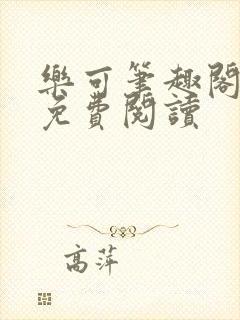 樂可筆趣閣
免費閱讀
高萍